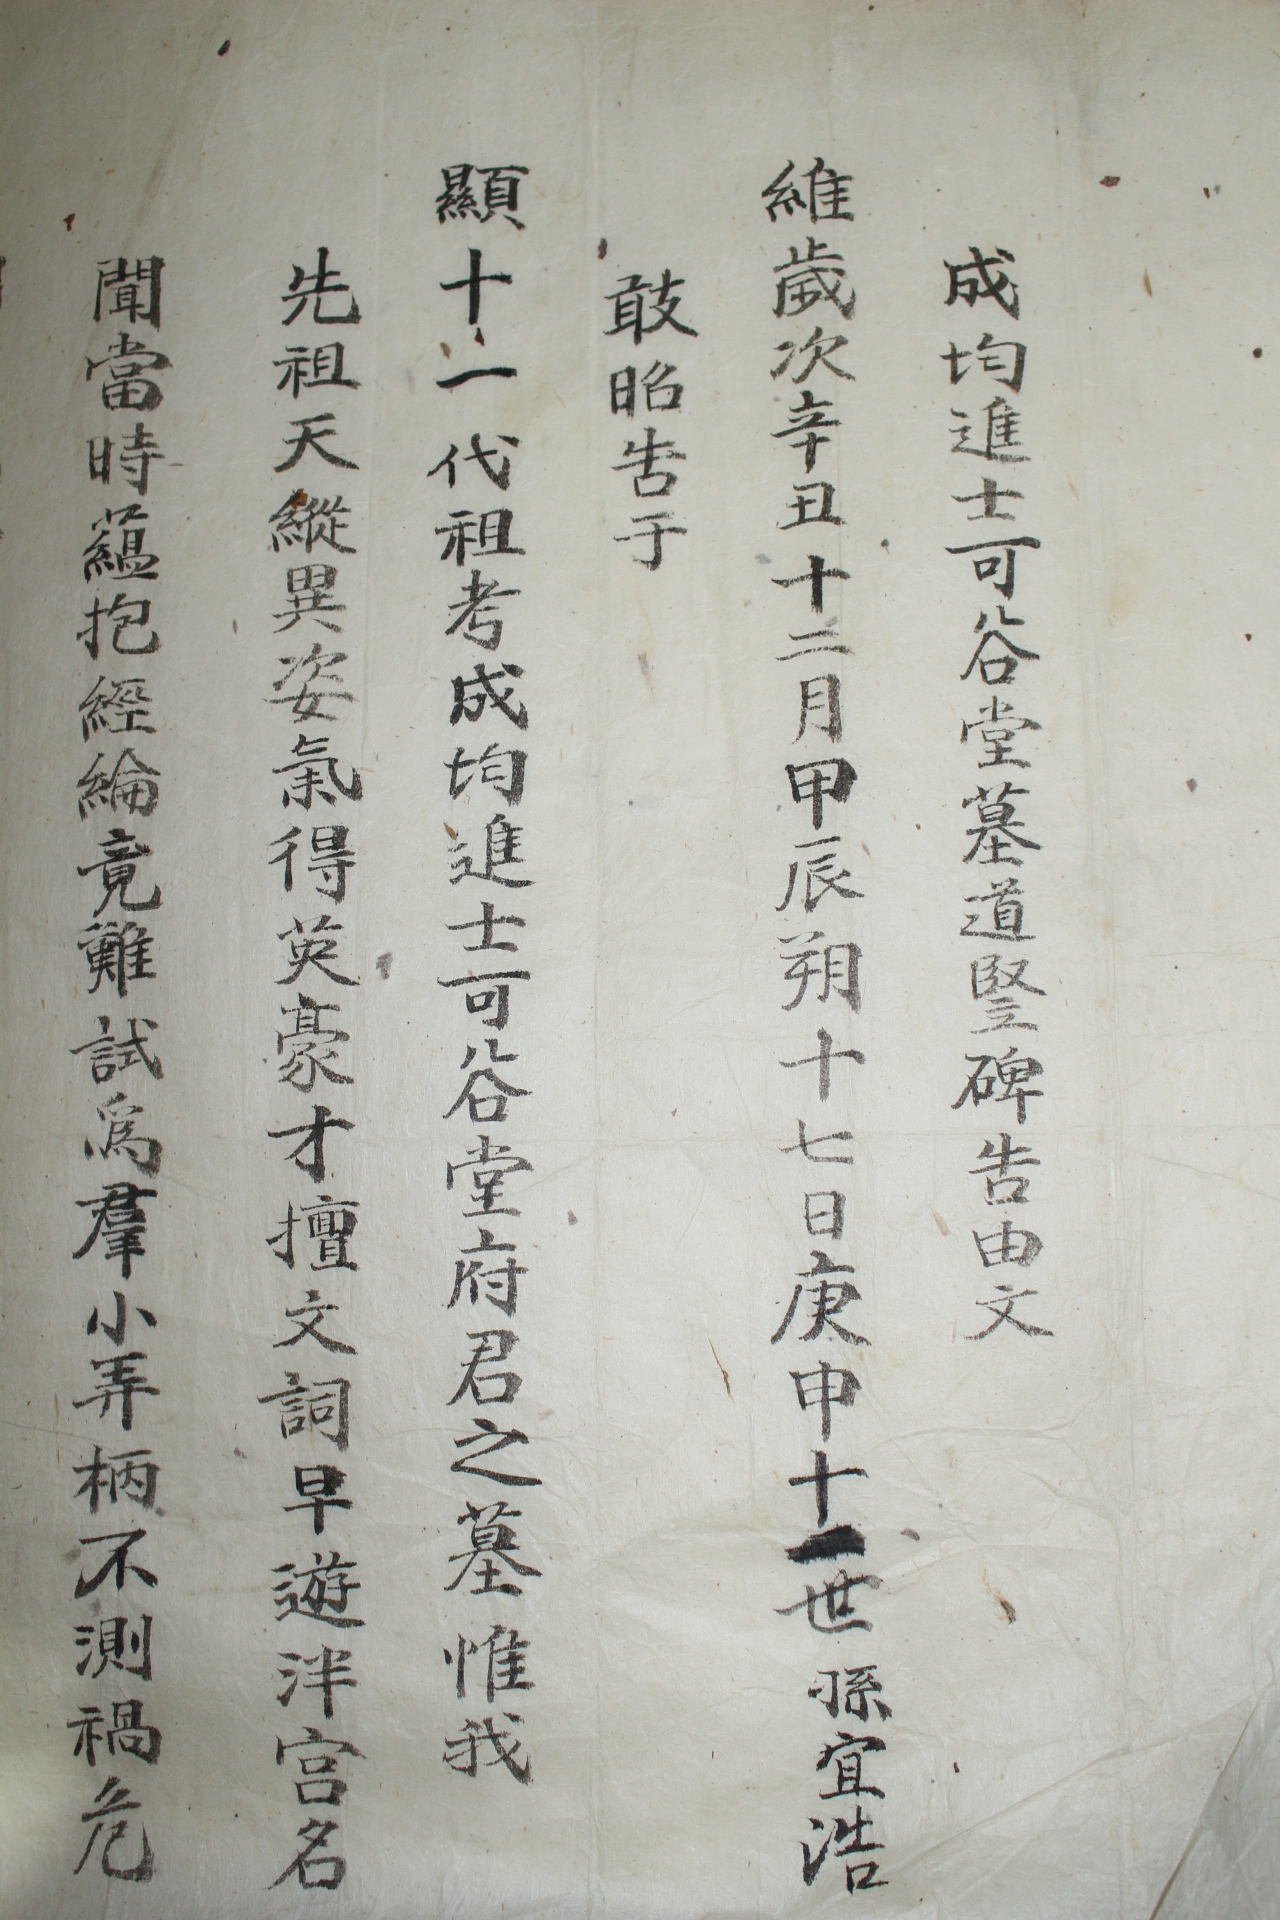 成均進士可谷堂墓道竪碑告由文
維歲次辛丑十二月甲辰朔十七日庚申十一世孫宜浩
敢昭告于
顯十一代祖考成均進士可谷堂府君之墓惟我
先祖天縱異姿氣得英豪才擅文詞早遊泮宮名
聞當時蘊抱經綸竟難試爲羣小弄柄不測禍危